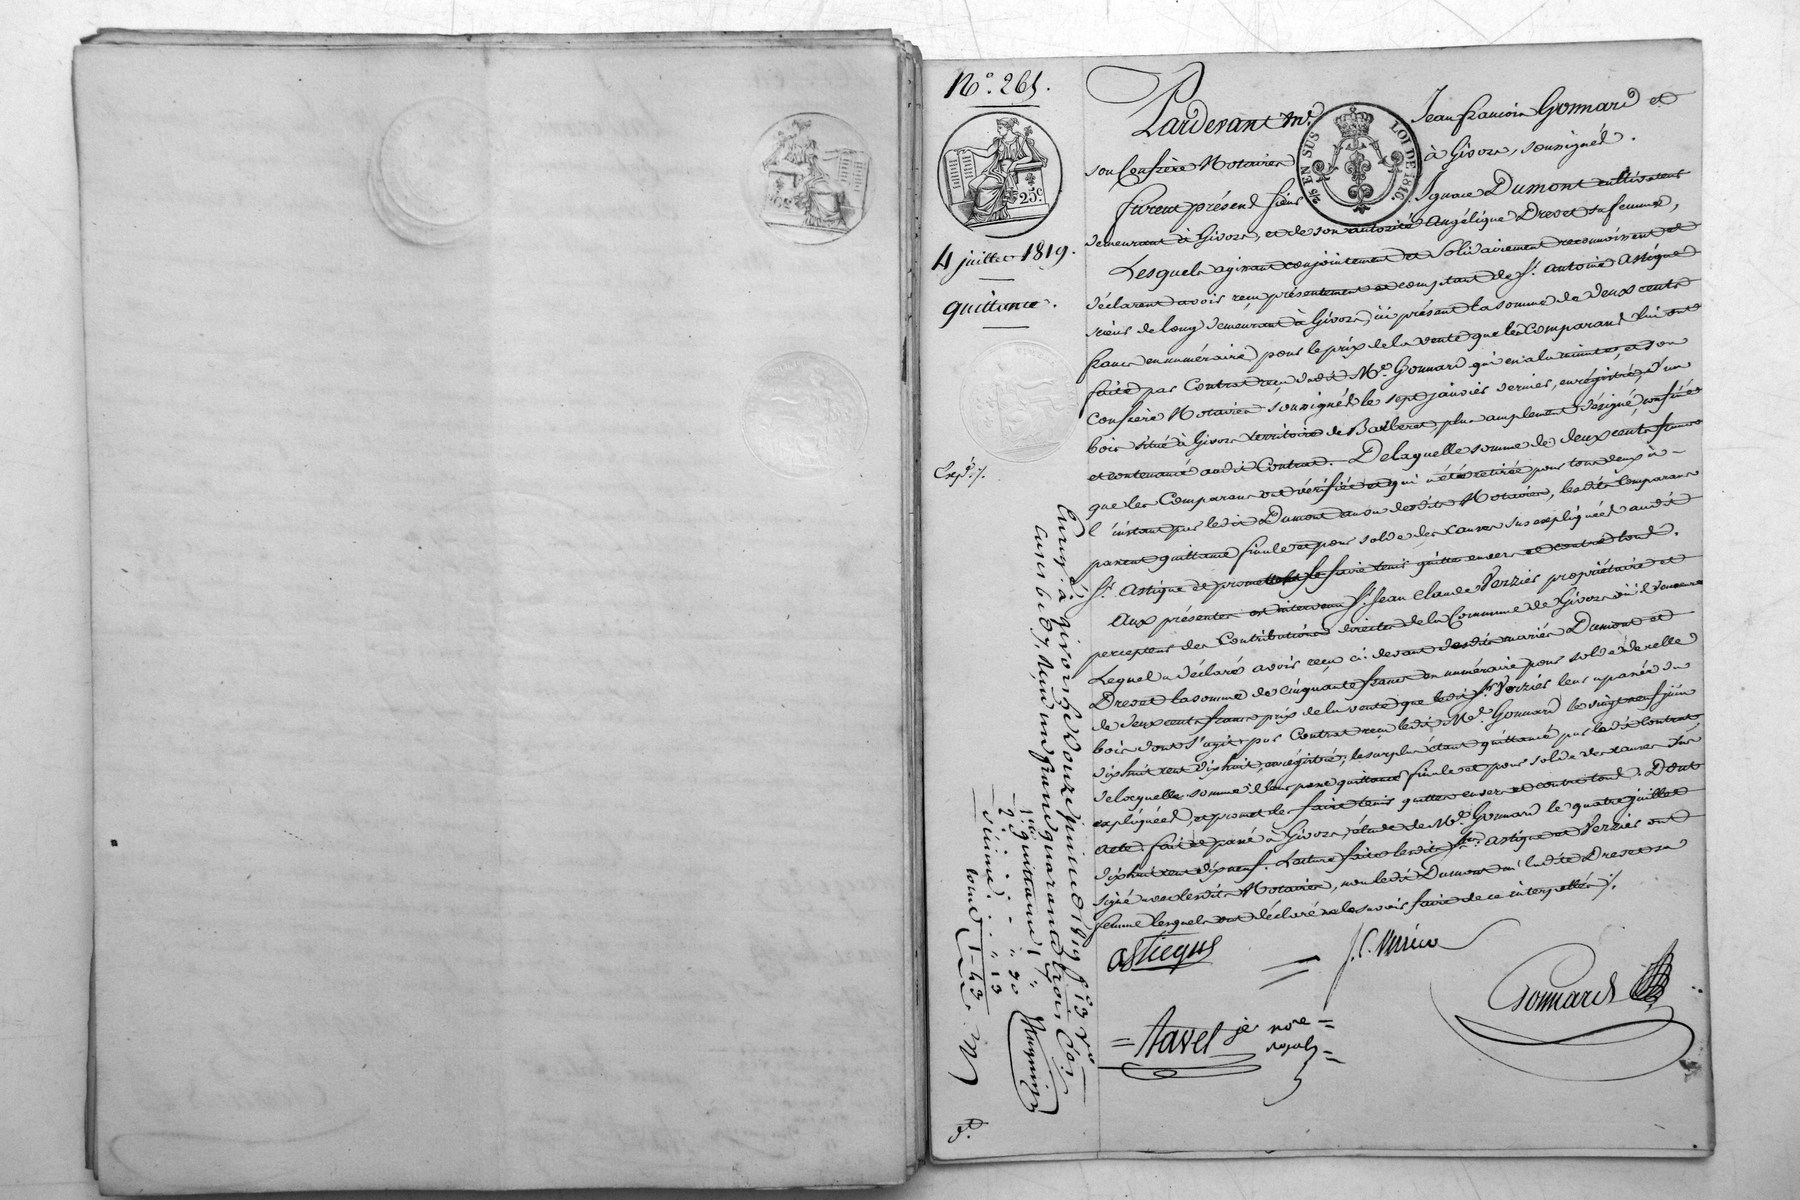 N.° 265.
25.c
4 juillet 1819.
quittance.
Exp.é /.
Pardevant M.e Jean francois Gonnard et
son Confrère Notaires à Givors, soussignés.
EN SUS LOI DE 1816.
furent présens sieur Ignace Dumont cultivateur
demeurant à Givors, et de son autorité Angélique Drevet sa femme,
Lesquels agissant conjointement et solidairement reconnoissent et
déclarent avoir reçu présentement et comptant de S.r Antoine Astique
sieur de long demeurant à Givors, ici présent la somme de deux cents
francs en numéraire, pour le prix de la vente que les Comparans lui ont
faite par Contrat reçu dudit M.e Gonnard qui en a la minute, et son
Confrère Notaires soussignés le sept janvier dernier, enregistré, d'un
bois situé à Givors territoire de Barberet plus amplement désigné, confiné
et contenancé audit Contrat. De laquelle somme de deux cents francs
que les Comparans ont vérifiée et qui a été retirée pour tous deux à
l'instant par ledit Dumont au vu desdits Notaires, lesdits Comparans
passent quittance finale et pour solde des causes sus expliquées audit
S.r Astique et promettent le faire tenir quitte envers et contre tous.
Aux présentes est intervenu S.r Jean Claude Verzier propriétaire et
percepteur des Contributions directes de la Commune de Givors où il demeure
Lequel a déclaré avoir reçu ci-devant desdits mariés Dumont et
Drevet la somme de cinquante francs en numéraire pour solde de celle
de deux cents francs prix de la vente que ledit S.r Verzier leur a passée du
bois dont s'agit par Contrat reçu ledit M.e Gonnard le vingt neuf juin
dix huit cent dix huit, enregistré, le surplus étant quittancé par ledit Contrat,
de laquelle somme il leur passe quittance finale et pour solde des causes sus
expliquées, et promet les faire tenir quittes envers et contre tous. Dont
acte. fait et passé à Givors, étude de M.e Gonnard le quatre juillet
dix huit cent dix neuf. Lecture faite lesdits S.rs Astique et Verzier ont
signé avec lesdits Notaires, non ledit Dumont ni ladite Drevet sa
femme lesquels ont déclaré ne le savoir faire de ce interpellés /.
Astique
J. C. Verzier
Gonnard
= Tavel je no.re =
royal =
Enreg.é à givors le douze juillet 1819 f.o 13 v.o
cases 6 et 7, Reçu un franc quarante trois C.es
1.re quittance 1 "
2.e " 30
" 13
total 1 - 43